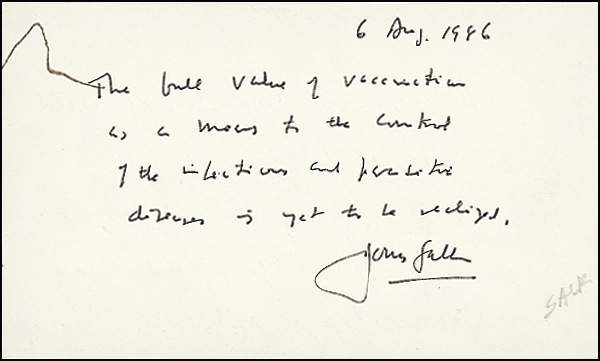 6 Aug. 1986
The full value of vaccination
as a means to the control
of the infectious and parasitic
diseases is yet to be realized.
Jonas Salk
SALK